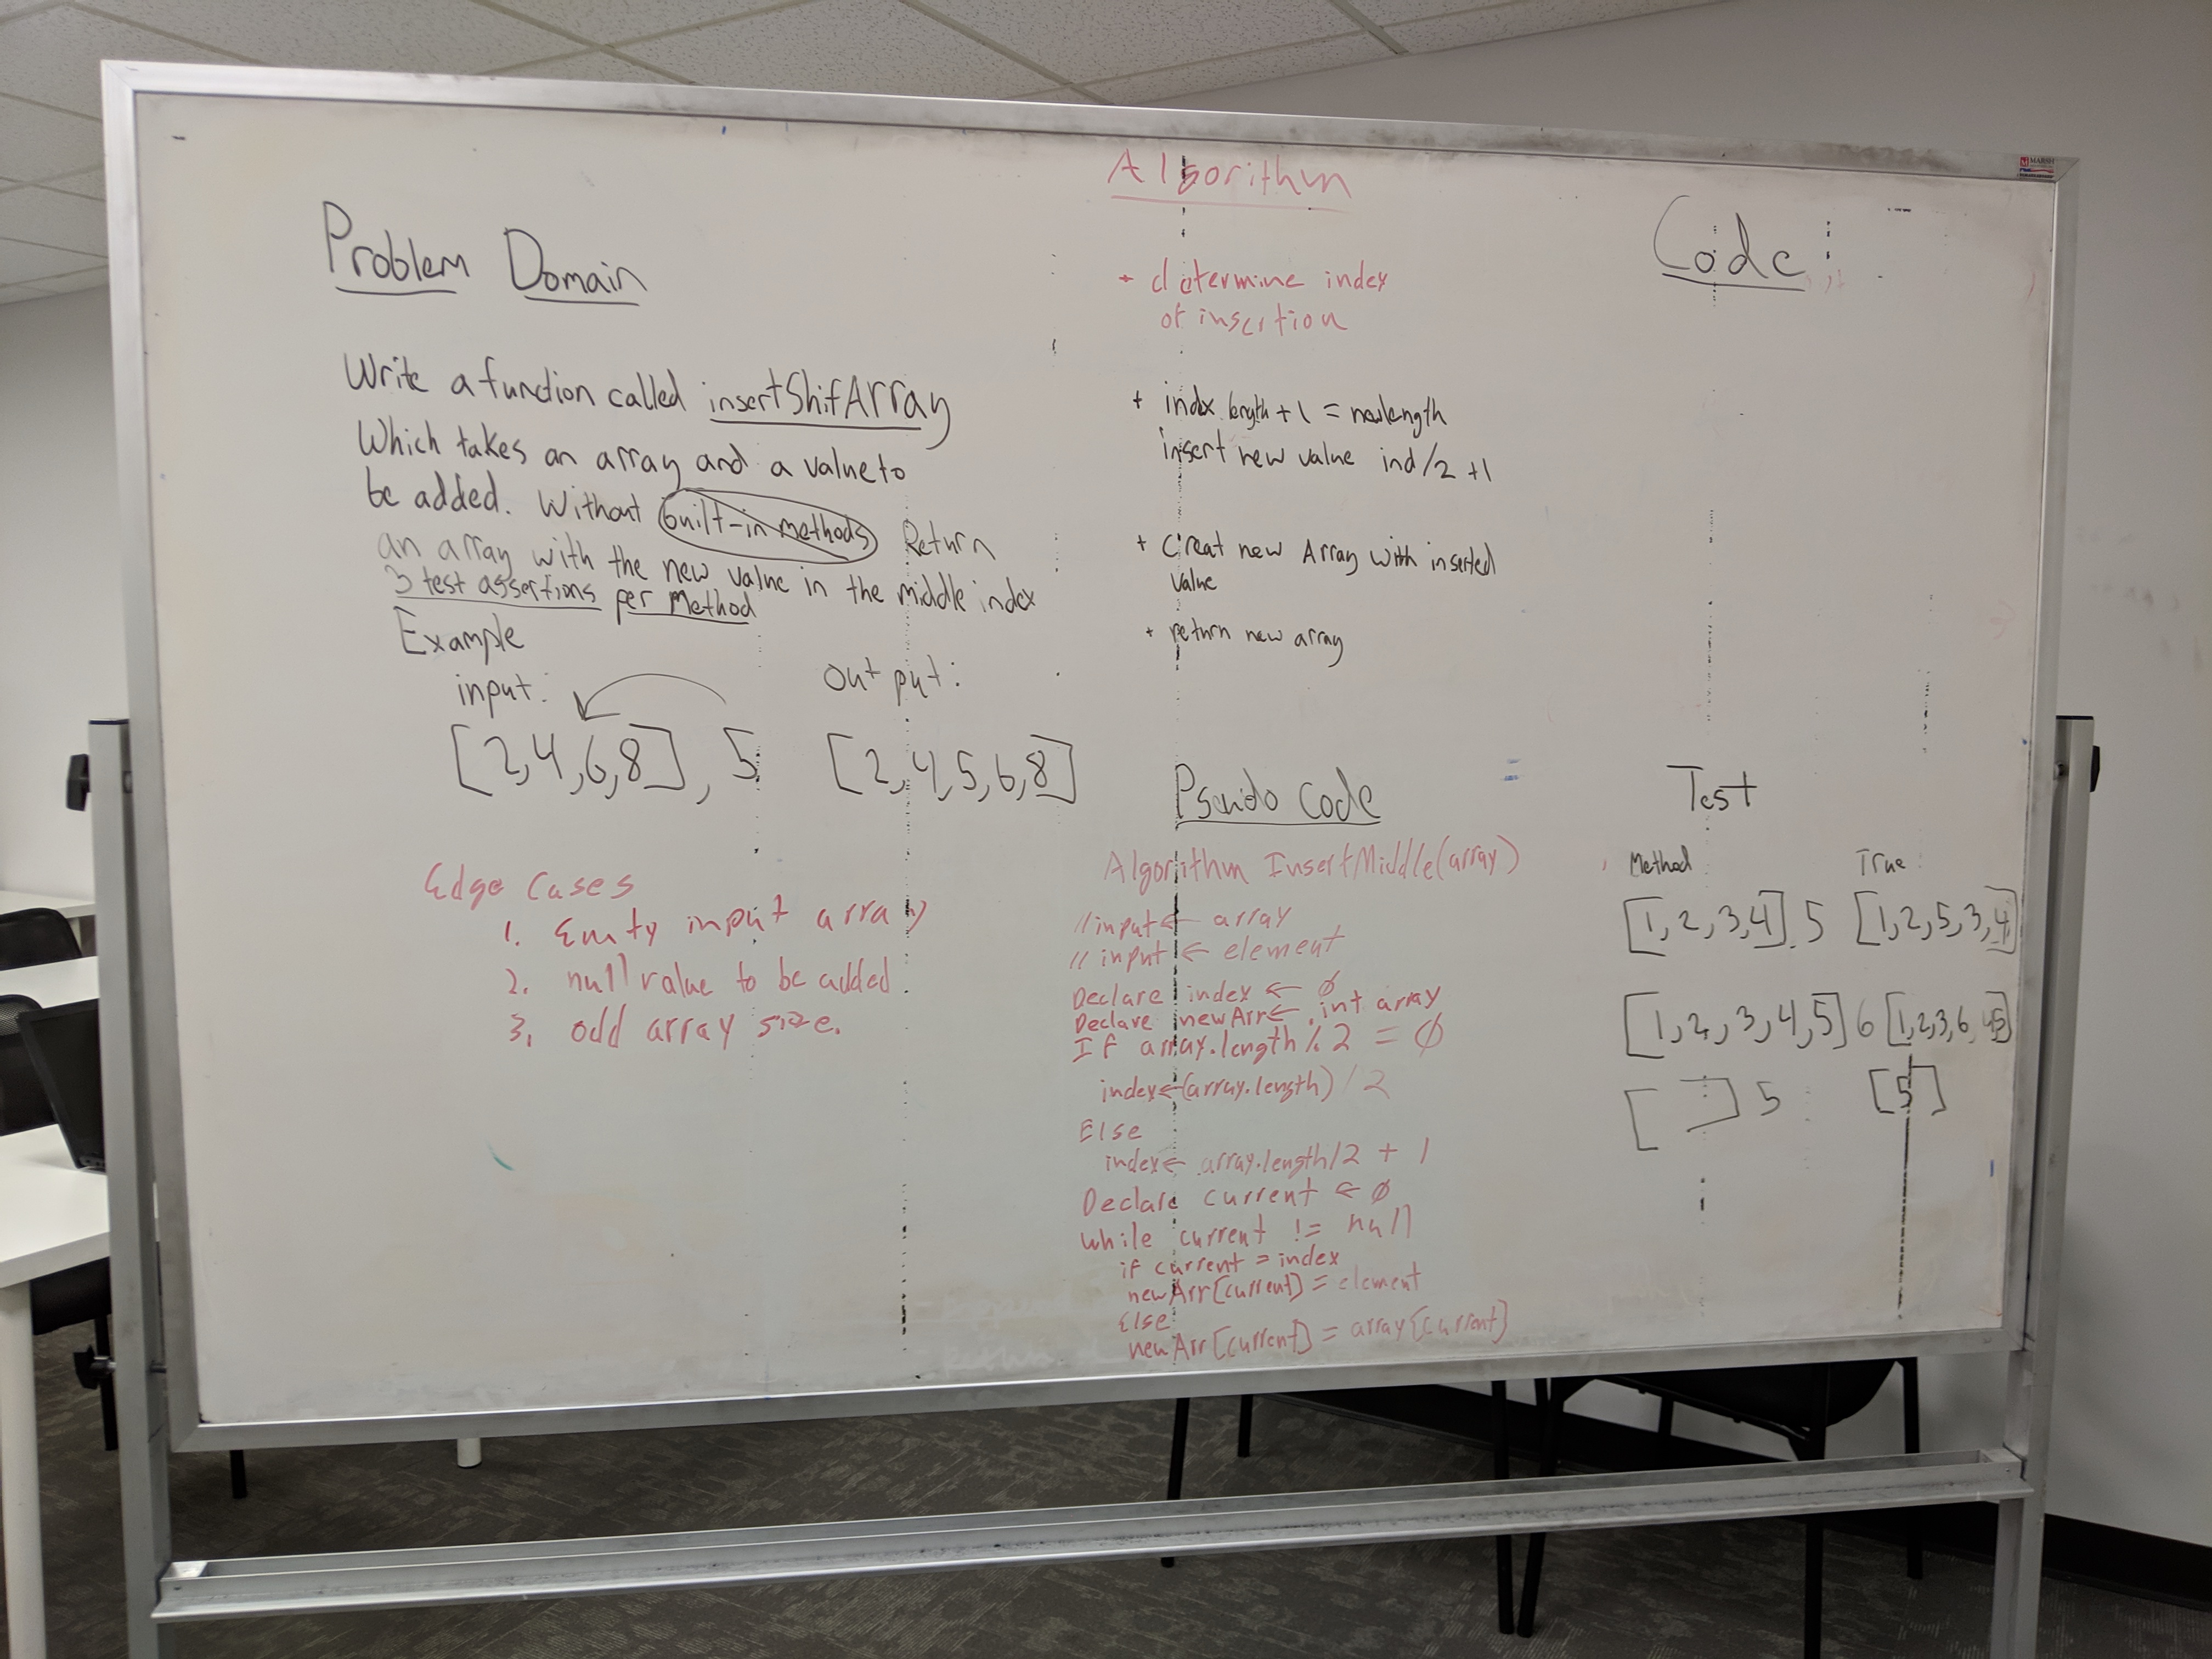 Problem Domain
Write a function called insertShifArray
Which takes an array and a value to
be added. Without built-in methods Return
an array with the new value in the middle index
3 test assertions per Method
Example
input:
output:
[2,4,6,8], 5
[2,4,5,6,8]
Edge Cases
1. Emty input array
2. null value to be added
3. odd array size.
Algorithm
+ determine index
of insertion
+ index length + 1 = newlength
insert new value ind/2 +1
+ Creat new Array with inserted
value
+ return new array
Pseudo Code
Algorithm InsertMiddle(array)
//input ← array
// input ← element
Declare index ← Ø
Declare newArr ← int array
If array.length % 2 = Ø
index ← (array.length) / 2
Else
index ← array.length/2 + 1
Declare current ← Ø
while current != null
if current = index
newArr[current] = element
Else
newArr[current] = array[current]
Code
MARSH
=
Test
Method True
[1,2,3,4], 5 [1,2,5,3,4]
[1,2,3,4,5] 6 [1,2,3,6,4,5]
[ ] 5 [5]